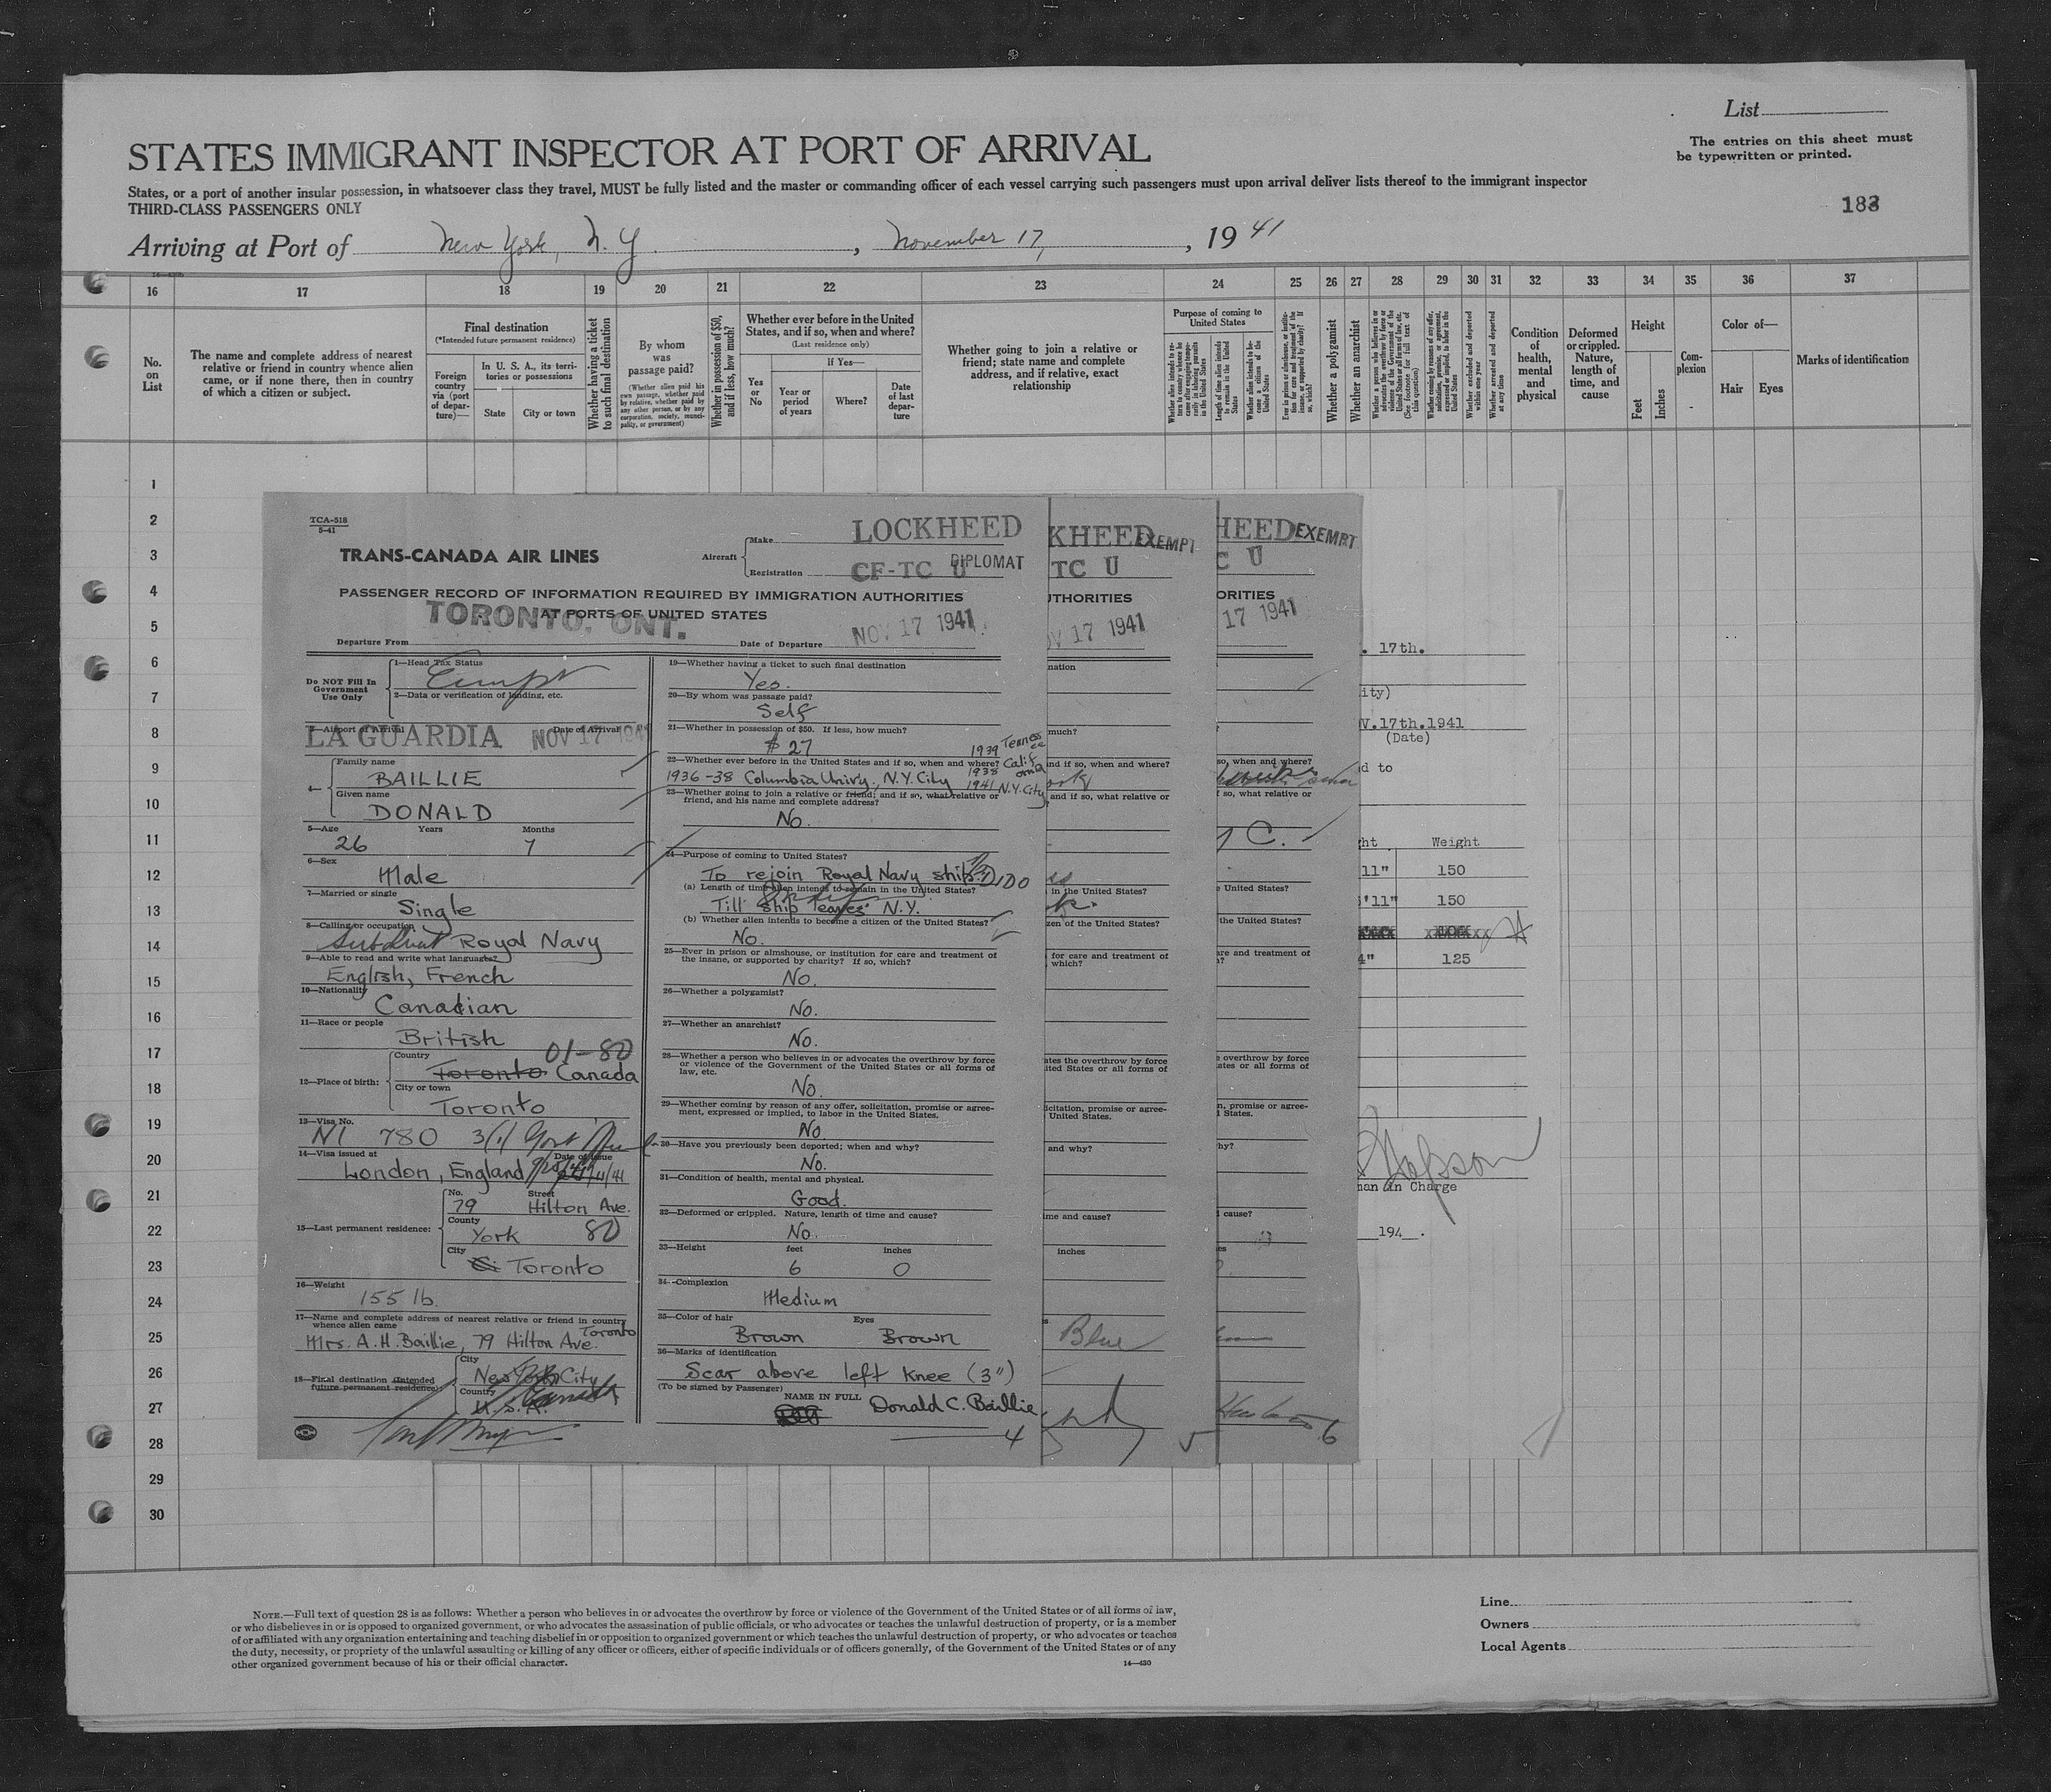 List
The entries on this sheet must
be typewritten or printed.
STATES IMMIGRANT INSPECTOR AT PORT OF ARRIVAL
States, or a port of another insular possession, in whatsoever class they travel, MUST be fully listed and the master or commanding officer of each vessel carrying such passengers must upon arrival deliver lists thereof to the immigrant inspector
THIRD-CLASS PASSENGERS ONLY
183
Arriving at Port of New York, N.Y., November 17, 1941
16 17 18 19 20 21 22 23 24 25 26 27 28 29 30 31 32 33 34 35 36 37
No. on List
The name and complete address of nearest relative or friend in country whence alien came, or if none there, then in country of which a citizen or subject.
Final destination
(*Intended future permanent residence)
Foreign country via (port of departure)—
In U. S. A., its territories or possessions
State
City or town
Whether having a ticket to such final destination
By whom was passage paid?
(Whether alien paid his own passage, whether paid by relative, whether paid by any other person, or by any corporation, society, municipality, or government)
Whether in possession of $50, and if less, how much?
Whether ever before in the United States, and if so, when and where?
(Last residence only)
Yes or No
If Yes—
Year or period of years
Where?
Date of last departure
Whether going to join a relative or friend; state name and complete address, and if relative, exact relationship
Purpose of coming to United States
Length of time alien intends to remain in the United States
Whether alien intends to become a citizen of the United States
Whether a polygamist
Whether an anarchist
Whether excluded and deported within one year
Whether arrested and deported at any time
Condition of health, mental and physical
Deformed or crippled. Nature, length of time, and cause
Height
Feet
Inches
Complexion
Color of—
Hair
Eyes
Marks of identification
1
2
3
4
5
6
7
8
9
10
11
12
13
14
15
16
17
18
19
20
21
22
23
24
25
26
27
28
29
30
TCA-518
5-41
TRANS-CANADA AIR LINES
Aircraft
Make LOCKHEED
Registration CF-TC U
DIPLOMAT
PASSENGER RECORD OF INFORMATION REQUIRED BY IMMIGRATION AUTHORITIES
AT PORTS OF UNITED STATES
Departure From TORONTO, ONT.
Date of Departure NOV 17 1941
Do NOT Fill In Government Use Only
1—Head Tax Status
Exempt
2—Data or verification of landing, etc.
3—Airport of Arrival LA GUARDIA
Date of Arrival NOV 17 194
4—
Family name
BAILLIE
Given name
DONALD
5—Age Years Months
26 7
6—Sex
Male
7—Married or single
Single
8—Calling or occupation
Royal Navy
9—Able to read and write what languages?
English, French
10—Nationality
Canadian
11—Race or people
British
01-80
12—Place of birth:
Country
Toronto Canada
City or town
Toronto
13—Visa No.
NI 780 3(1)
14—Visa issued at Date of Issue
London, England
15—Last permanent residence:
No. Street
79 Hilton Ave.
County
York 80
City
Toronto
16—Weight
155 lb.
17—Name and complete address of nearest relative or friend in country whence alien came
Mrs. A. H. Baillie, 79 Hilton Ave. Toronto
18—Final destination (Intended future permanent residence):
City
New York City
Country
U.S.A.
Canada
19—Whether having a ticket to such final destination
Yes.
20—By whom was passage paid?
Self
21—Whether in possession of $50. If less, how much?
$27
22—Whether ever before in the United States and if so, when and where?
1936-38 Columbia Univ., N.Y. City
1939 Tennessee
1938 California
1941 N.Y. City
23—Whether going to join a relative or friend; and if so, what relative or friend, and his name and complete address?
No.
24—Purpose of coming to United States?
To rejoin Royal Navy ship DIDO
(a) Length of time alien intends to remain in the United States?
Till ship leaves N.Y.
(b) Whether alien intends to become a citizen of the United States?
No.
25—Ever in prison or almshouse, or institution for care and treatment of the insane, or supported by charity? If so, which?
No.
26—Whether a polygamist?
No.
27—Whether an anarchist?
No.
28—Whether a person who believes in or advocates the overthrow by force or violence of the Government of the United States or all forms of law, etc.
No.
29—Whether coming by reason of any offer, solicitation, promise or agreement, expressed or implied, to labor in the United States.
No.
30—Have you previously been deported; when and why?
No.
31—Condition of health, mental and physical.
Good.
32—Deformed or crippled. Nature, length of time and cause?
No.
33—Height feet inches
6 0
34—Complexion
Medium
35—Color of hair Eyes
Brown Brown
36—Marks of identification
Scar above left knee (3")
(To be signed by Passenger)
NAME IN FULL Donald C. Baillie
4
KHEED EXEMPT
TC U
THORITIES
V 17 1941
Blue
5
HEED EXEMPT
C U
ORITIES
17 1941
C.
6
. 17th.
ity)
V.17th.1941
(Date)
d to
ht Weight
11" 150
'11" 150
4" 125
man in Charge
194 .
NOTE.—Full text of question 28 is as follows: Whether a person who believes in or advocates the overthrow by force or violence of the Government of the United States or of all forms of law,
or who disbelieves in or is opposed to organized government, or who advocates the assassination of public officials, or who advocates or teaches the unlawful destruction of property, or is a member
of or affiliated with any organization entertaining and teaching disbelief in or opposition to organized government or which teaches the unlawful destruction of property, or who advocates or teaches
the duty, necessity, or propriety of the unlawful assaulting or killing of any officer or officers, either of specific individuals or of officers generally, of the Government of the United States or of any
other organized government because of his or their official character.
14—430
Line
Owners
Local Agents